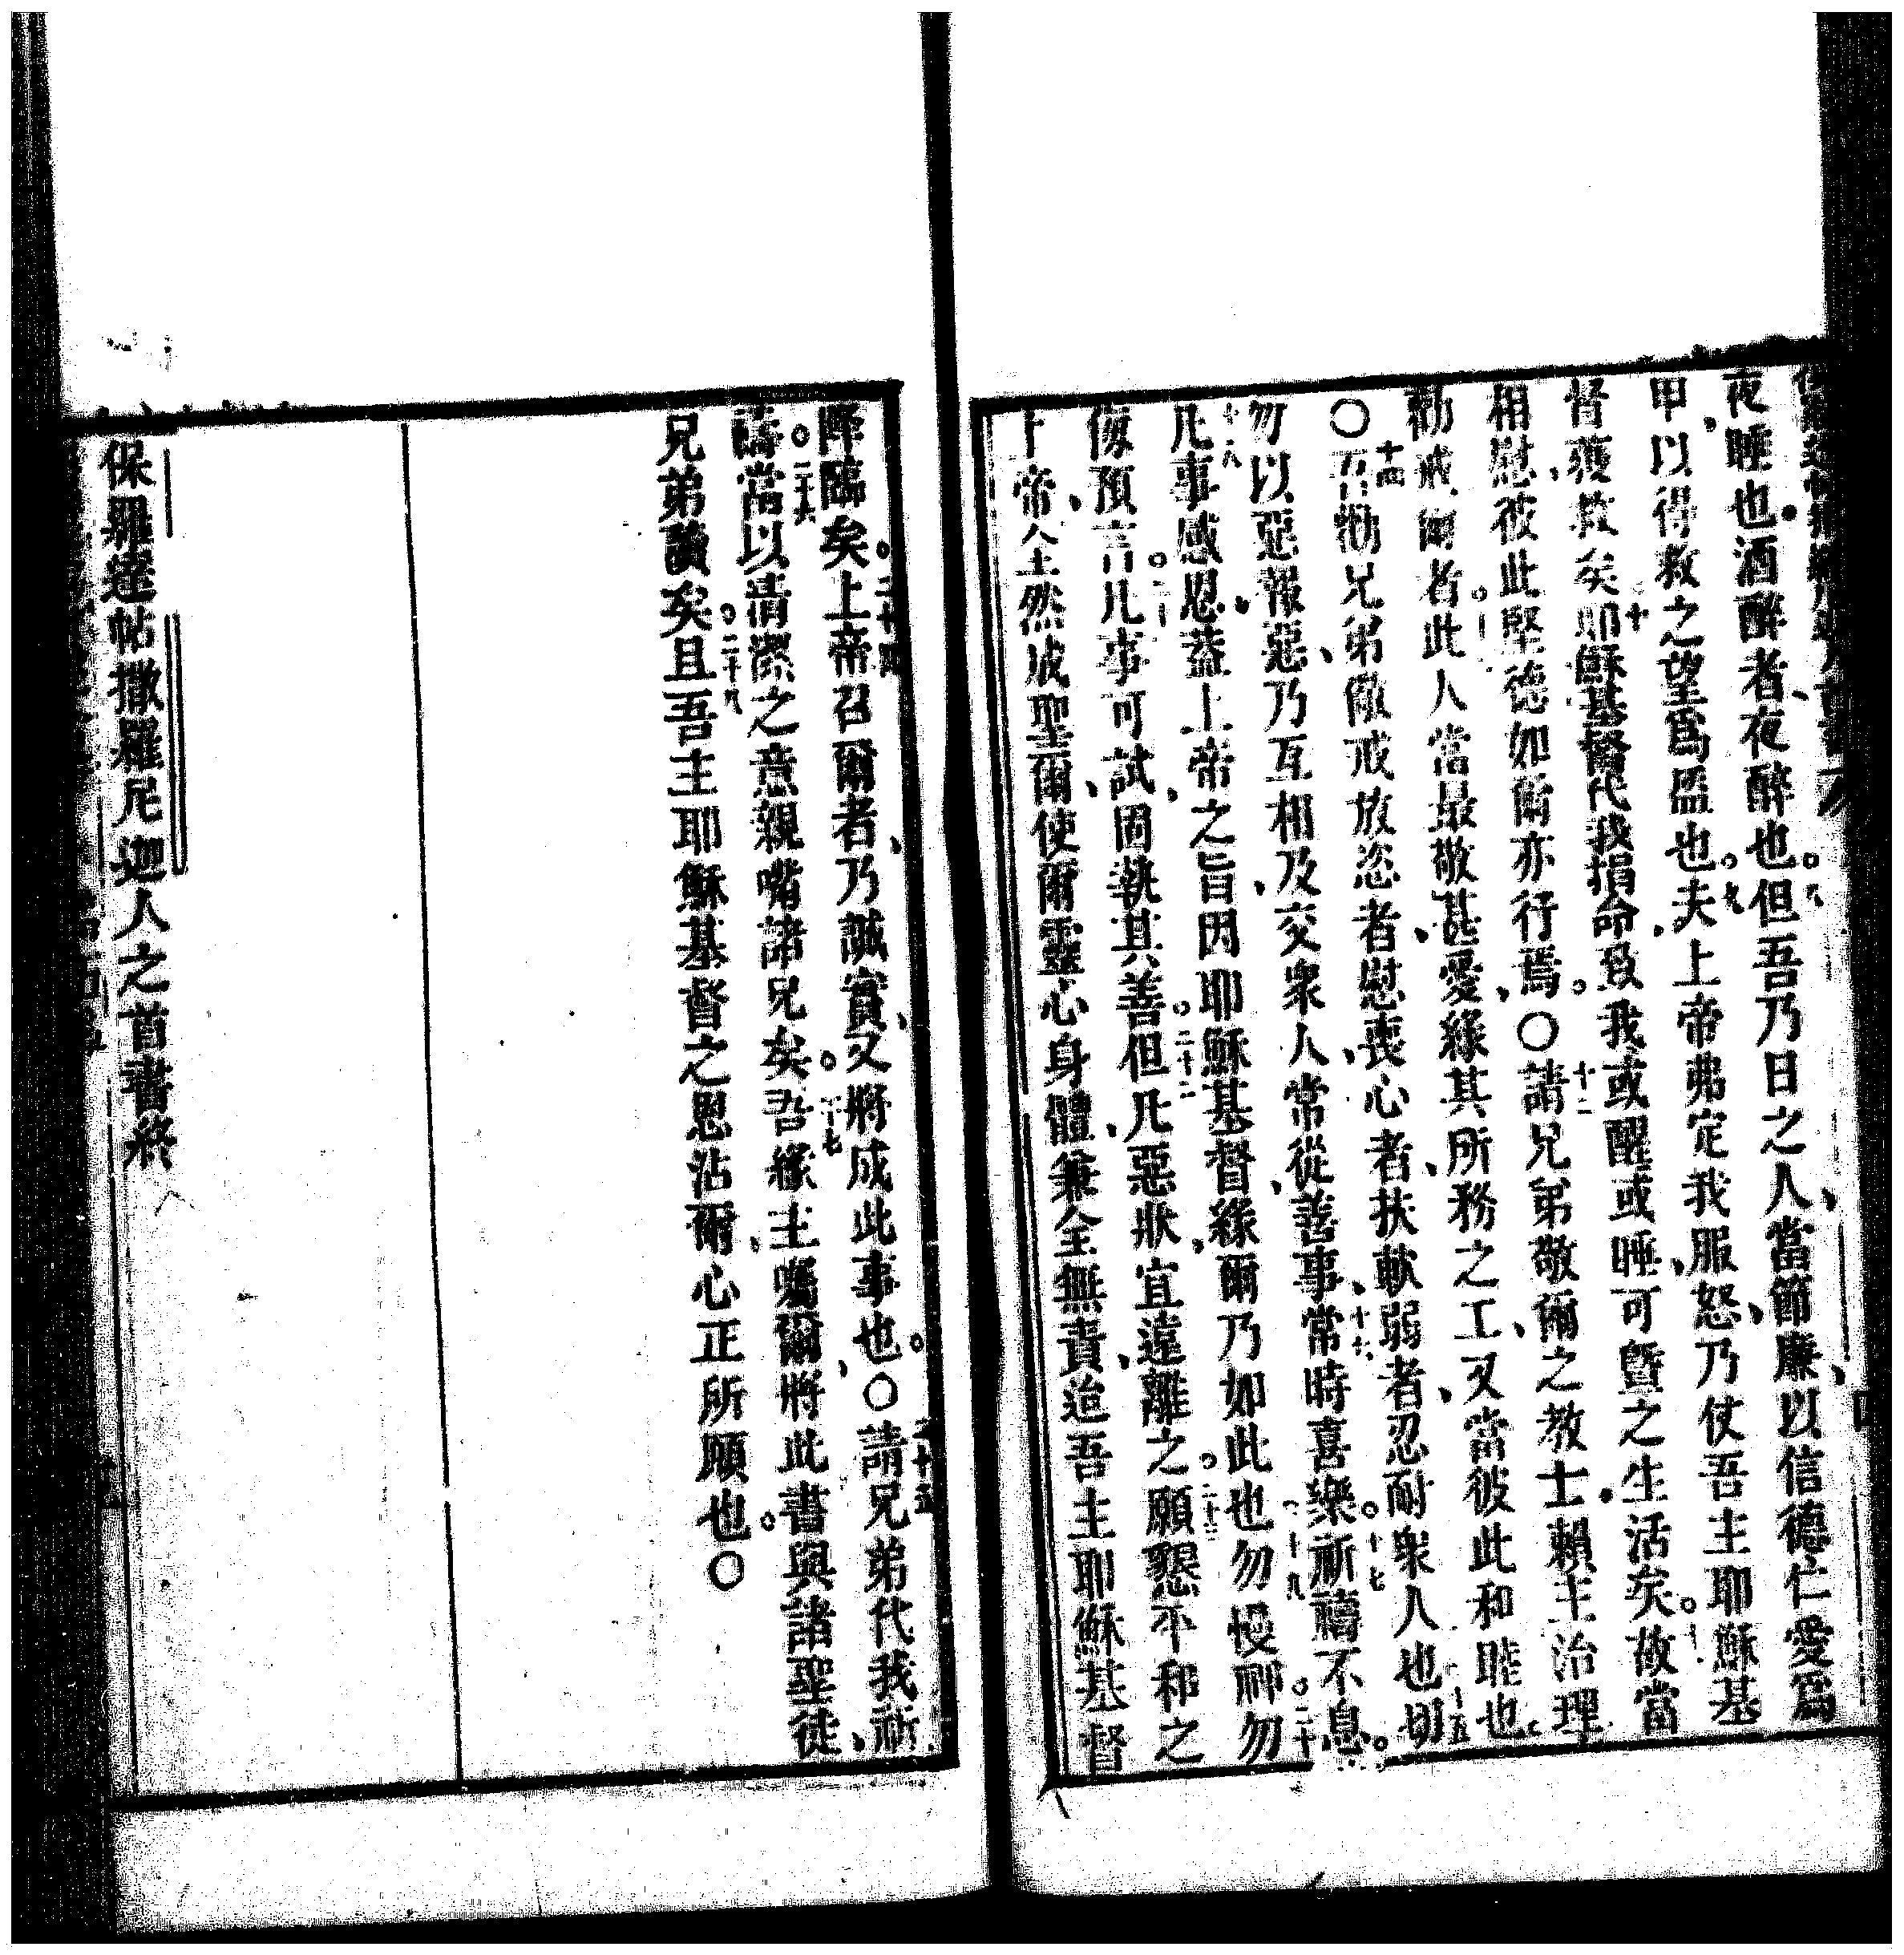 夜睡也酒醉者夜醉也。八但吾乃日之人、當節廉、以信德仁愛爲
甲、以得救之望爲盔也。九夫上帝弗定我服怒、乃仗吾主耶穌基
督獲救矣十耶穌基督代我捐命、致我或醒或睡、可曁之生活矣。故當
相慰、彼此堅德、如爾亦行焉。〇十二請兄弟敬爾之教士、賴主治理
勸戒爾者。此人當最敬甚愛、緣其所務之工、又當彼此和睦也
〇十四吾勸兄弟儆戒放恣者、慰喪心者、扶軟弱者、忍耐衆人也十五切
勿以惡報惡、乃互相及交衆人、常從善事、十六常時喜樂。十七祈禱不息。
十八凡事感恩、蓋上帝之旨、因耶穌基督、緣爾乃如此也十九勿慢神。二十勿
傷預言。凡事可試、固執其善。二十二但凡惡狀、宜遠離之。二十三願懇平和之
上帝、全然成聖爾、使爾靈心身體、兼全無責、迨吾主耶穌基督
降臨矣。二十四上帝召爾者、乃誠實、又將成此事也。〇二十五請兄弟代我祈
禱。二十六當以清潔之意、親嘴諸兄矣。二十七吾緣主囑爾、將此書與諸聖徒、
兄弟讀矣。二十八且吾主耶穌基督之恩沾爾心、正所願也。〇
保羅達帖撒羅尼迦人之首書終